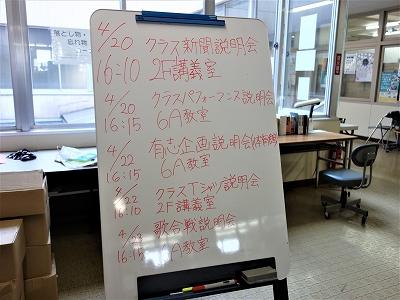 落とし物・
忘れ物
4/20 クラス新聞説明会
16:10 2F講義室
4/20 クラスパフォーマンス説明会
16:15 6A教室
4/22 有志企画説明会
16:15 6A教室
4/22 クラスTシャツ説明会
16:10 2F講義室
歌合戦説明会
16:15 A教室